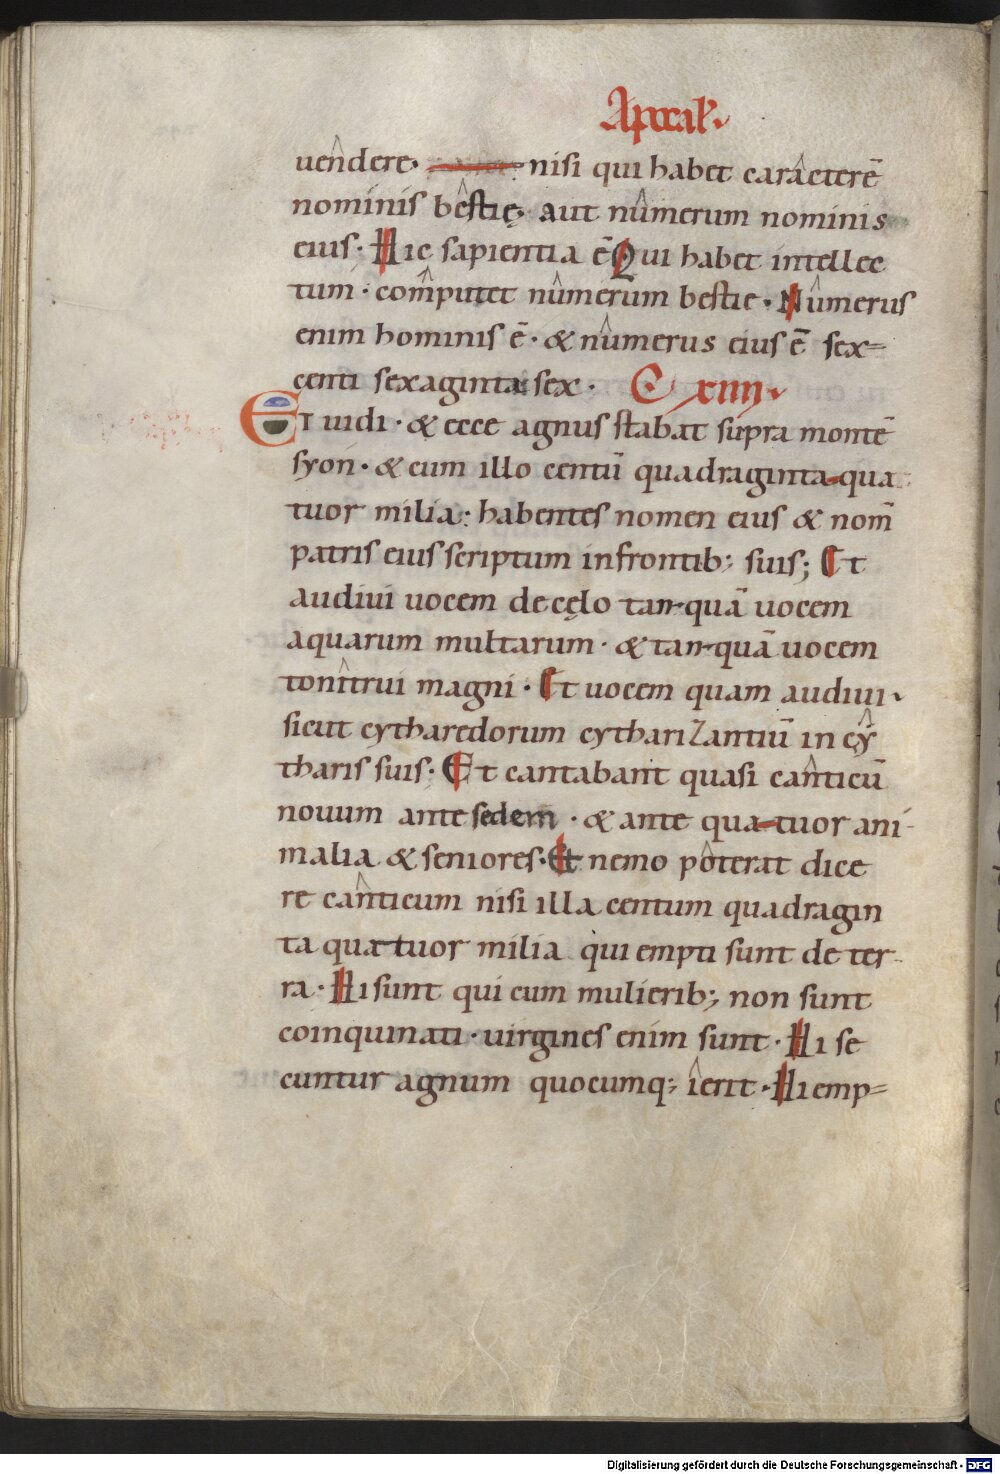 Apocał.
uendere· nisi qui habet caracterē
nominis bestię· aut numerum nominis
eius· Hic sapientia ē Qui habet intellec
tum· computet numerum bestie· Numerus
enim hominis ē· & numerus eius ē sex-
centi sexaginta sex· C xiiii
Et uidi· & ecce agnus stabat supra montē
syon· & cum illo centū quadraginta qua
tuor milia· habentes nomen eius & nom̄
patris eius scriptum in frontib; suis; Et
audiui uocem de cęlo tanquā uocem
aquarum multarum· & tanquā uocem
tonitrui magni· Et uocem quam audiui
sicut cytharedorum cytharizantiū in cy
tharis suis· Et cantabant quasi canticū
nouum ante sedem· & ante quatuor ani-
malia & seniores· Et nemo poterat dice
re canticum nisi illa centum quadragin
ta quatuor milia qui empti sunt de ter-
ra· Hi sunt qui cum mulierib; non sunt
coinquinati· uirgines enim sunt· Hi se
cuntur agnum quocumq; ierit· Hi emp-
Digitalisierung gefördert durch die Deutsche Forschungsgemeinschaft - DFG